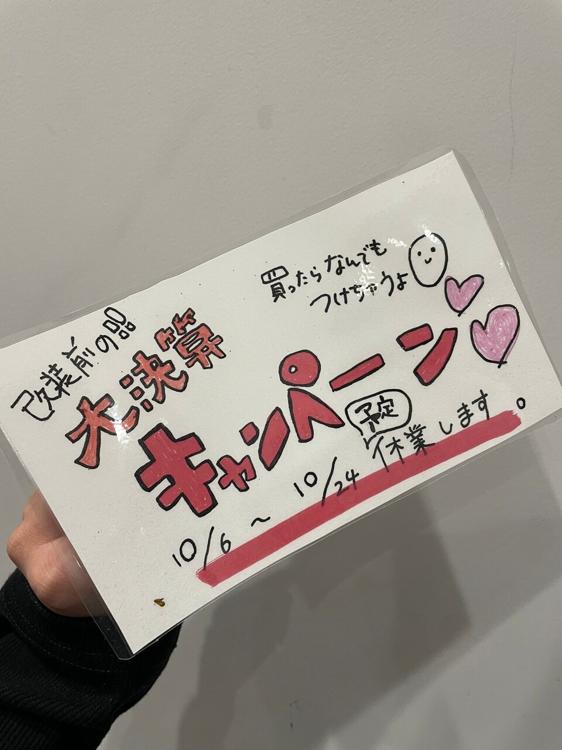 改装前の品
大決算
買ったらなんでも
つけちゃうよ
キャンペーン
予定
10/6 ~ 10/24 休業します。